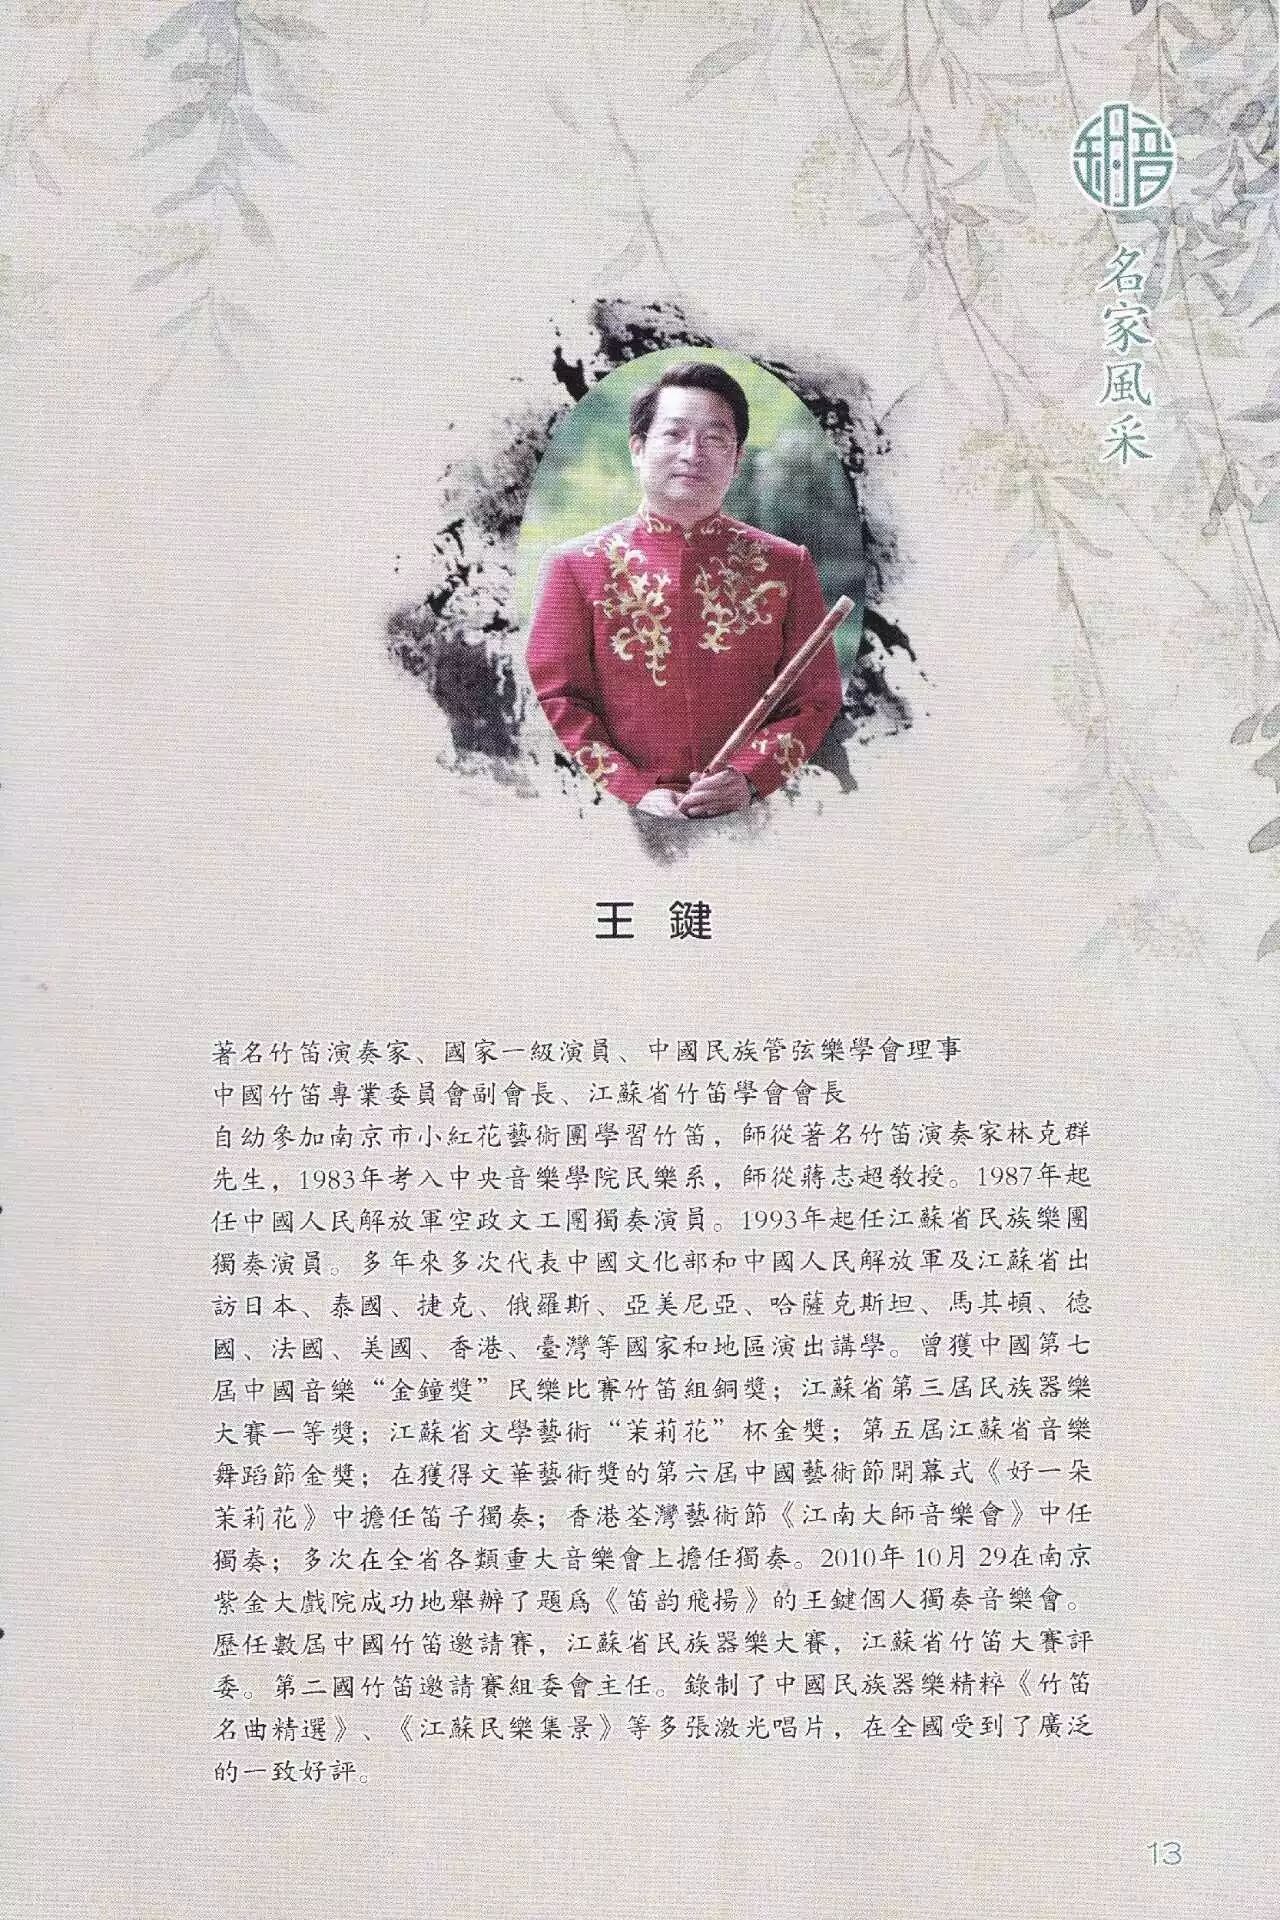 名家風采
王 鍵
著名竹笛演奏家、國家一級演員、中國民族管弦樂學會理事
中國竹笛專業委員會副會長、江蘇省竹笛學會會長
自幼參加南京市小紅花藝術團學習竹笛，師從著名竹笛演奏家林克群
先生，1983年考入中央音樂學院民樂系，師從蔣志超教授。1987年起
任中國人民解放軍空政文工團獨奏演員。1993年起任江蘇省民族樂團
獨奏演員。多年來多次代表中國文化部和中國人民解放軍及江蘇省出
訪日本、泰國、捷克、俄羅斯、亞美尼亞、哈薩克斯坦、馬其頓、德
國、法國、美國、香港、臺灣等國家和地區演出講學。曾獲中國第七
屆中國音樂“金鐘獎”民樂比賽竹笛組銅獎；江蘇省第三屆民族器樂
大賽一等獎；江蘇省文學藝術“茉莉花”杯金獎；第五屆江蘇省音樂
舞蹈節金獎；在獲得文華藝術獎的第六屆中國藝術節開幕式《好一朵
茉莉花》中擔任笛子獨奏；香港荃灣藝術節《江南大師音樂會》中任
獨奏；多次在全省各類重大音樂會上擔任獨奏。2010年10月29在南京
紫金大戲院成功地舉辦了題爲《笛韵飛揚》的王鍵個人獨奏音樂會。
歷任數屆中國竹笛邀請賽，江蘇省民族器樂大賽，江蘇省竹笛大賽評
委。第二國竹笛邀請賽組委會主任。錄制了中國民族器樂精粹《竹笛
名曲精選》、《江蘇民樂集景》等多張激光唱片，在全國受到了廣泛
的一致好評。
13